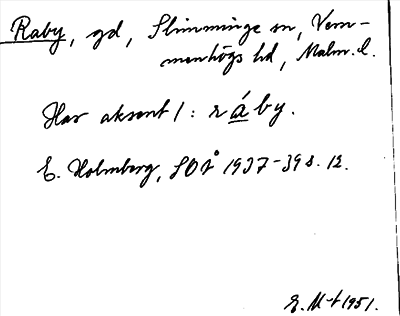 Raby, gd, Slimminge sn, Vem-
menhögs hd, Malm. l.
Har aksent 1: råby.
E. Holmberg, SOÅ 1937-39 s. 12.
E. M-t 1951.